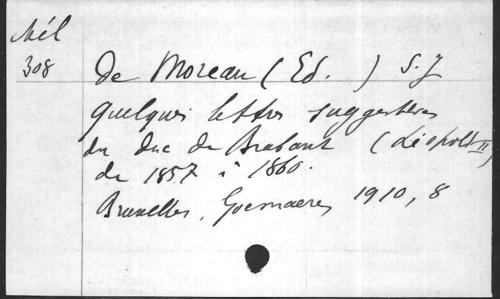 Mél
308
de Moreau (Ed. ) S.J
quelques lettres suggestives
du duc de Brabant (Léopold II)
de 1857 à 1860.
Bruxelles, Goemaere, 1910, 8